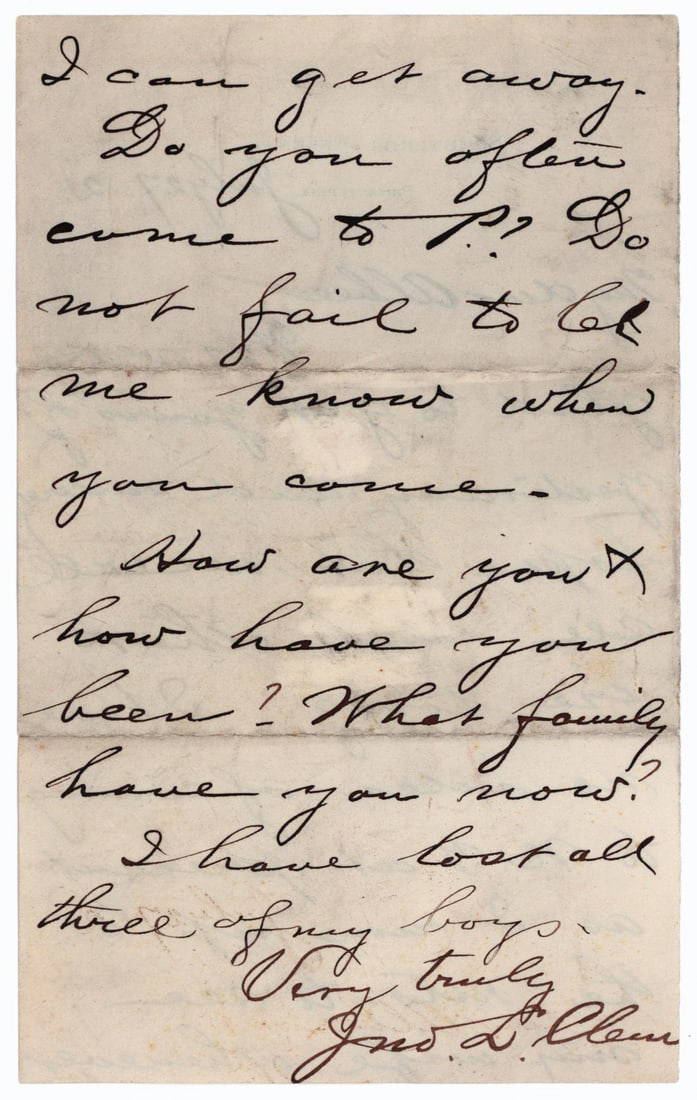 I can get away.
Do you often
come to P.? Do
not fail to let
me know when
you come.
How are you &
how have you
been? What family
have you now?
I have lost all
three of my boys.
Very truly
Jno. L. Clem